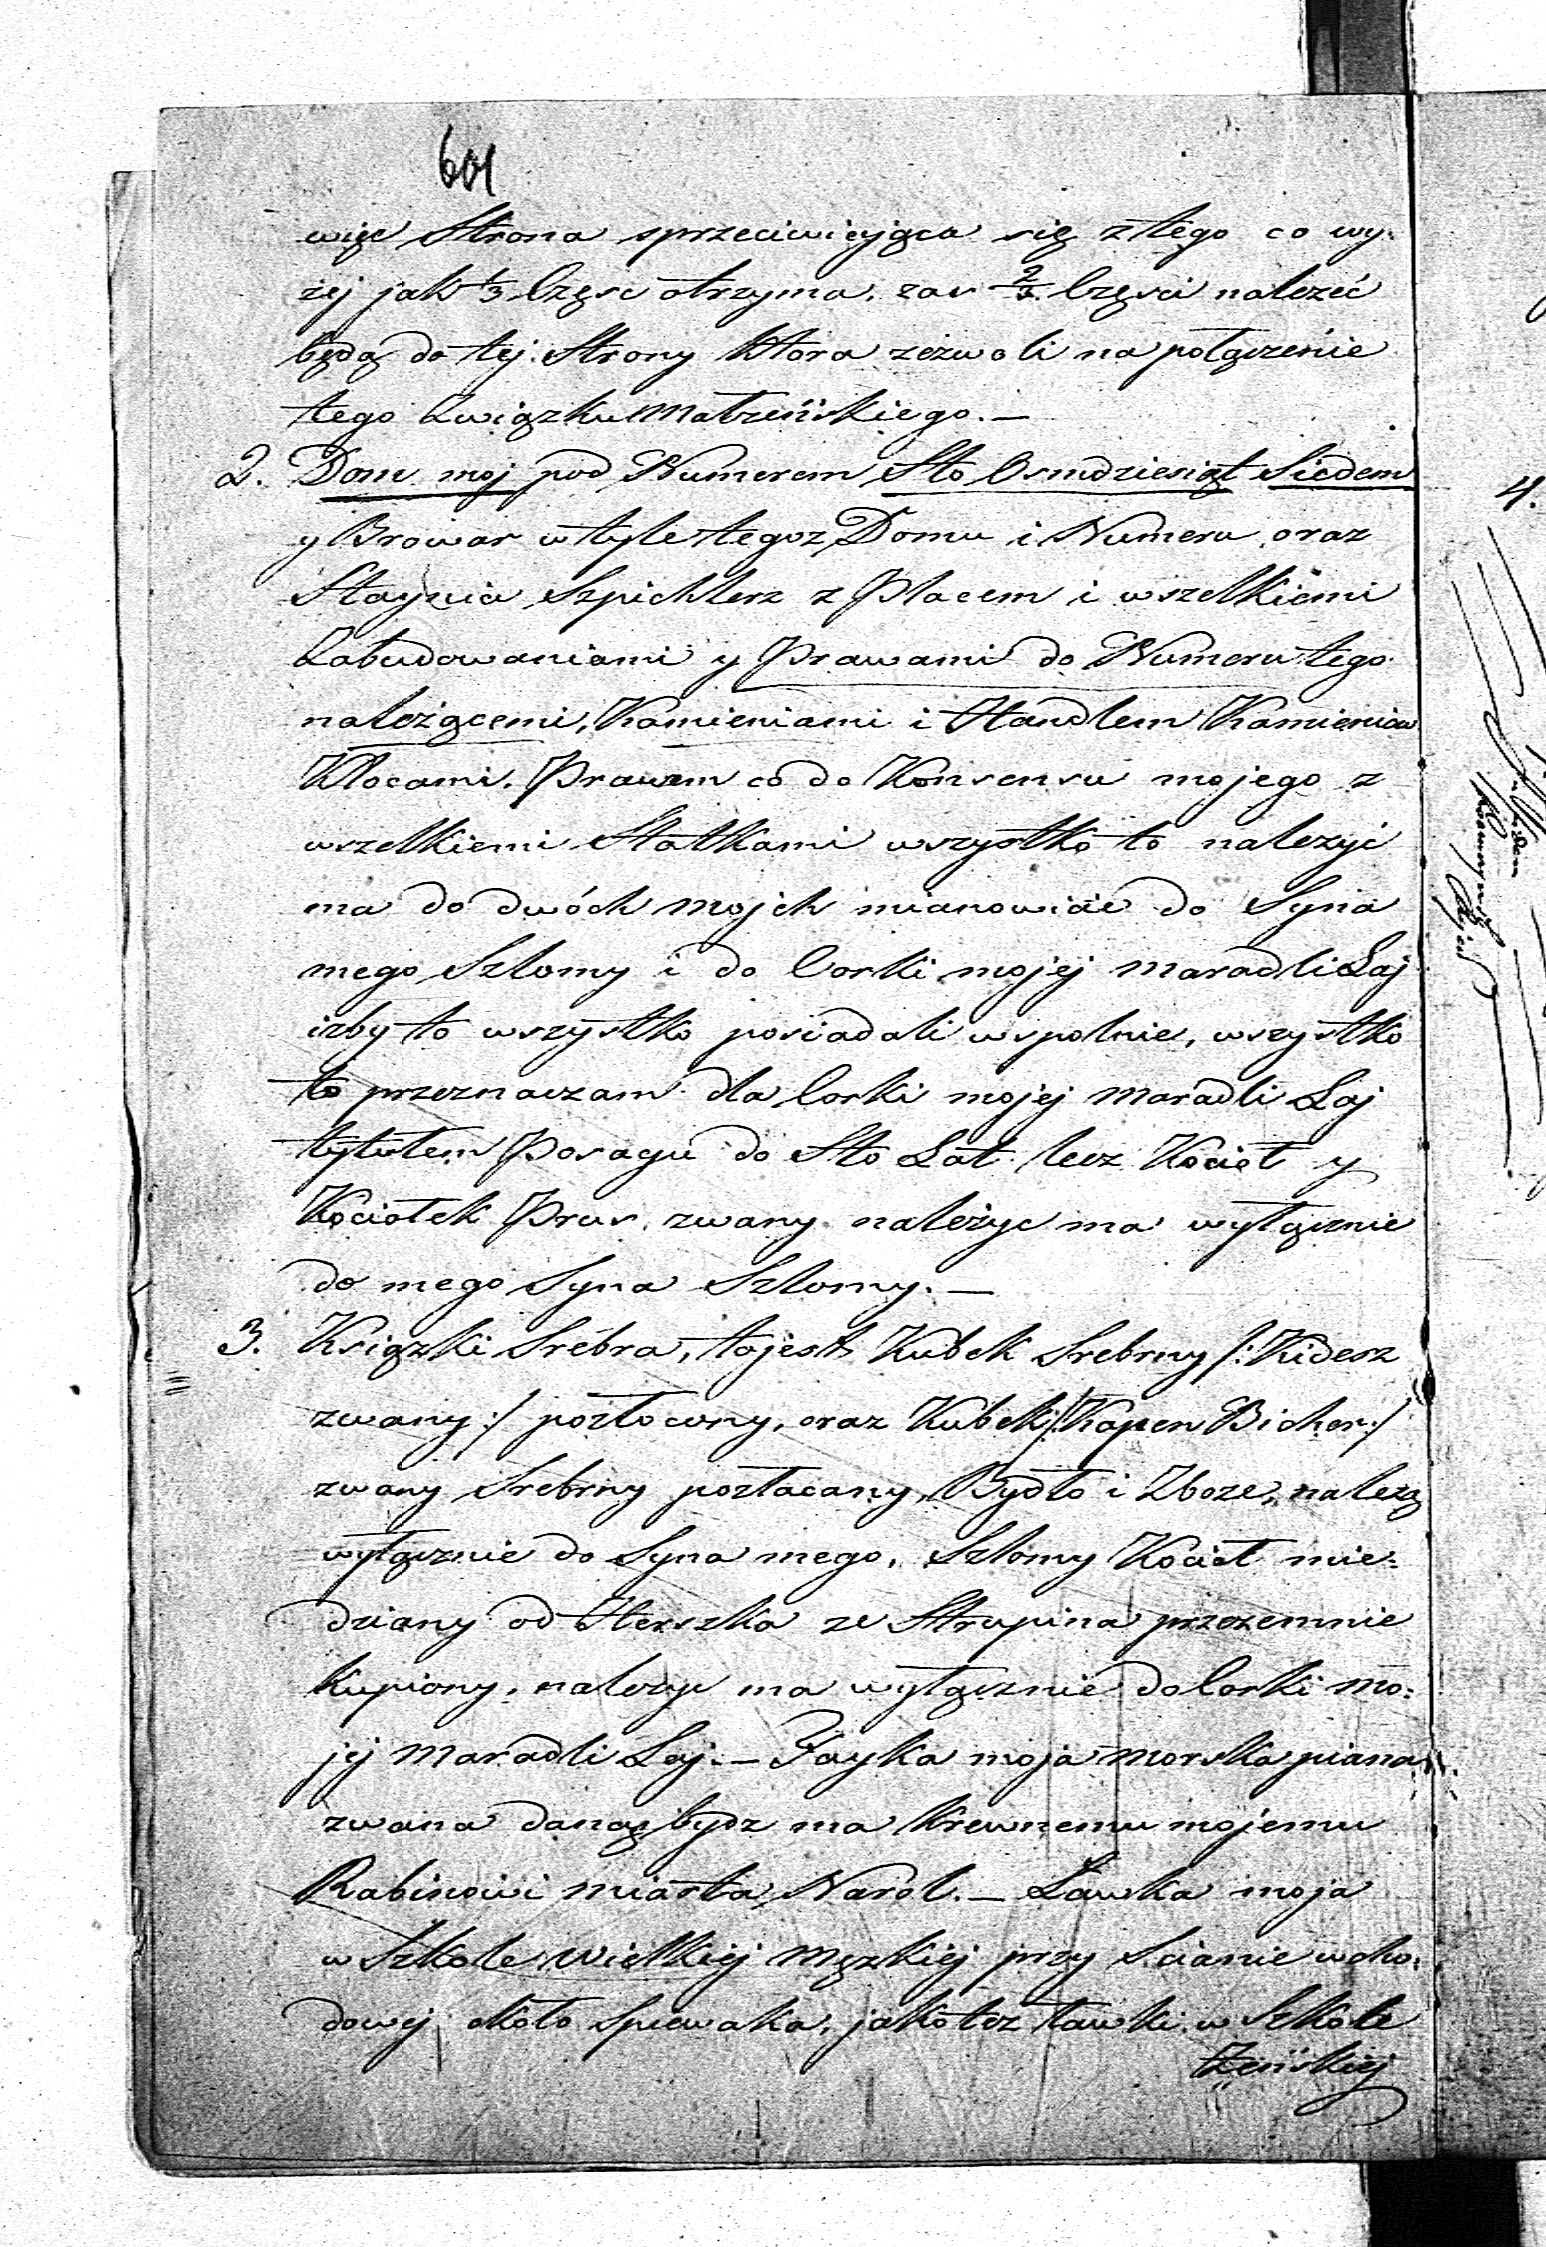 601
więc Strona sprzeciwiająca się z tego co wy-
żej jak 1/3 Częsc otrzyma, zas 2/3 Częsci nalezeć
będą do tej Strony ktora zezwoli na połączenie
tego Związku Małzeńskiego.—
2. Dom moj pod Numerem Sto Osmdziesiąt Siedem
y Browar w tyle tegoz Domu i Numeru, oraz
Staynia Szpichlerz z Placem i wszelkiemi
Zabudowaniami y Prawami do Numeru tego
należącemi, Kamieniami i Handlem Kamieniów
Klocami. Prawem co do Konsensu mojego z
wszelkiemi Statkami wszystko to nalezyć
ma do dwóch mojch mianowicie do Syna
mego Szlomy i do Corki mojej Maradli Laj
izby to wszystko posiadali wspolnie, wszystko
to przeznaczam dla Corki mojej Maradli Laj
tytułem Posagu do Sto Lat lecz Kocioł y
Kociołek Prus zwany należyc ma wyłącznie
do mego Syna Szlomy.—
3. Książki Srébra, to jest Kubek Srebrny /: Kidesz
zwany :/ pozłocony, oraz Kubek /: Kopen Bicher :/
zwany Srebrny pozłacany, Bydło i Zboze, nalezą
wyłącznie do Syna mego, Szlomy Kocioł mie-
dziany od Herszka ze Strupina przezemnie
kupiony, nalezyc ma wyłącznie do Corki mo-
jej Maradli Laj.— Fayka moja morska piana
zwana daną bydz ma Krewnemu mojemu
Rabinowi miasta Narol.— Ławka moja
w Szkole Wielkiej Męzkiéj przy Scianie wcho-
dowej około Spiewaka, jako tez ławki w Szkole
Żeńskiéj
4.